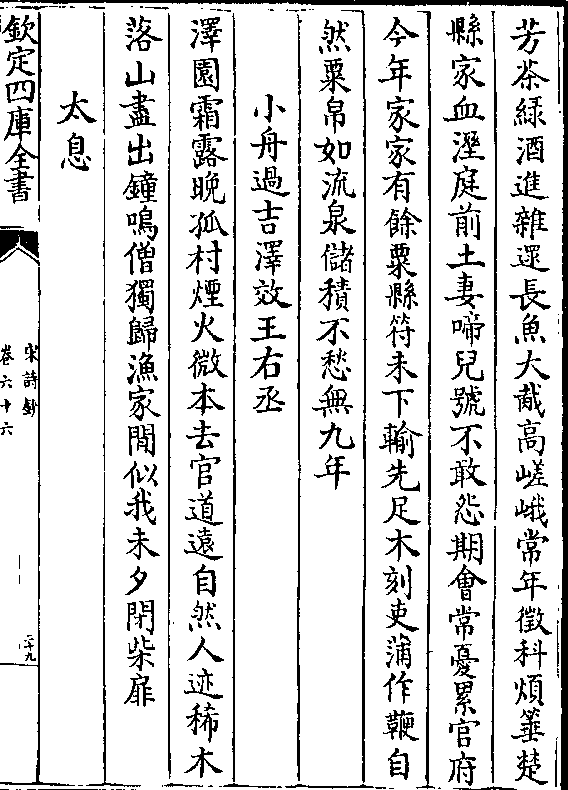 芳茶綠酒進雜遝長魚大胾高嵯峨常年徵科煩箠楚
縣家血溼庭前土妻啼兒號不敢怨期會常憂累官府
今年家家有餘粟縣符未下輸先足木刻吏蒲作鞭自
然粟帛如流泉儲積不愁無九年
小舟過吉澤效王右丞
澤園霜露晚孤村煙火微本去官道遠自然人迹稀木
落山盡出鐘鳴僧獨歸漁家閒似我未夕閉柴扉
太息
欽定四庫全書
宋詩鈔
卷六十六
二十九